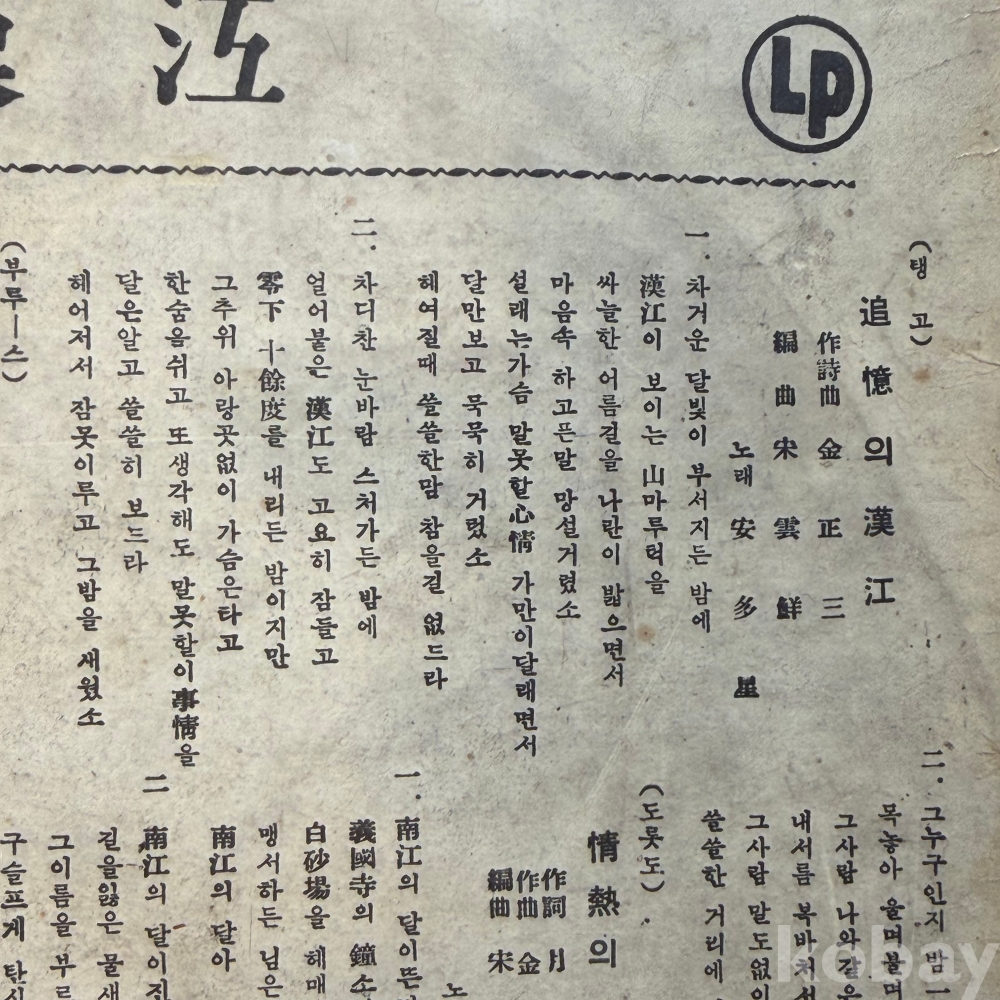 江
LP
(탱고)
追憶의漢江
作詩曲 金正三
編曲 宋雲鮮
노래 安多星
一. 차거운 달빛이 부서지든 밤에
漢江이 보이는 山마루턱을
싸늘한 어름길을 나란이 밟으면서
마음속 하고픈말 망설거렸소
설래는가슴 말못할心情 가만이달래면서
달만보고 묵묵히 거렀소
헤여질때 쓸쓸한맘 참을길 없드라
二. 차디찬 눈바람 스처가든 밤에
얼어붙은 漢江도 고요히 잠들고
零下 十餘度를 내리든 밤이지만
그추위 아랑곳없이 가슴은타고
한숨을쉬고 또생각해도 말못할이事情을
달은알고 쓸쓸히 보드라
헤어저서 잠못이루고 그밤을 새웠소
(부루ー스)
二. 그누구인지 밤
목놓아 울며불며
그사람 나와같은
내서름 복바처서
그사람 말도없이
쓸쓸한 거리에
(도롯도)
情熱의
作詞 月
作曲 金
編曲 宋
노
一. 南江의 달이뜬
義國寺의 鐘소
白砂場을 헤매
맹서하든 님은
南江의 달아
二 南江의 달이진
길을잃은 물새
그이름을 부르
구슬프게 탄식
kobay